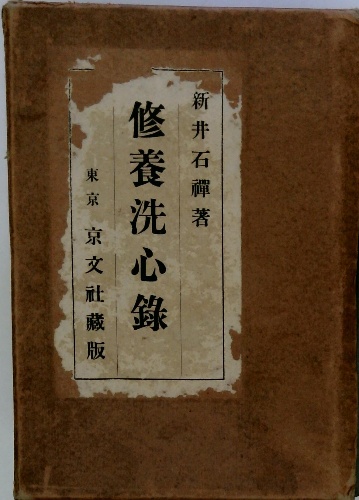 新井石禪著
修養洗心錄
東京 京文社藏版